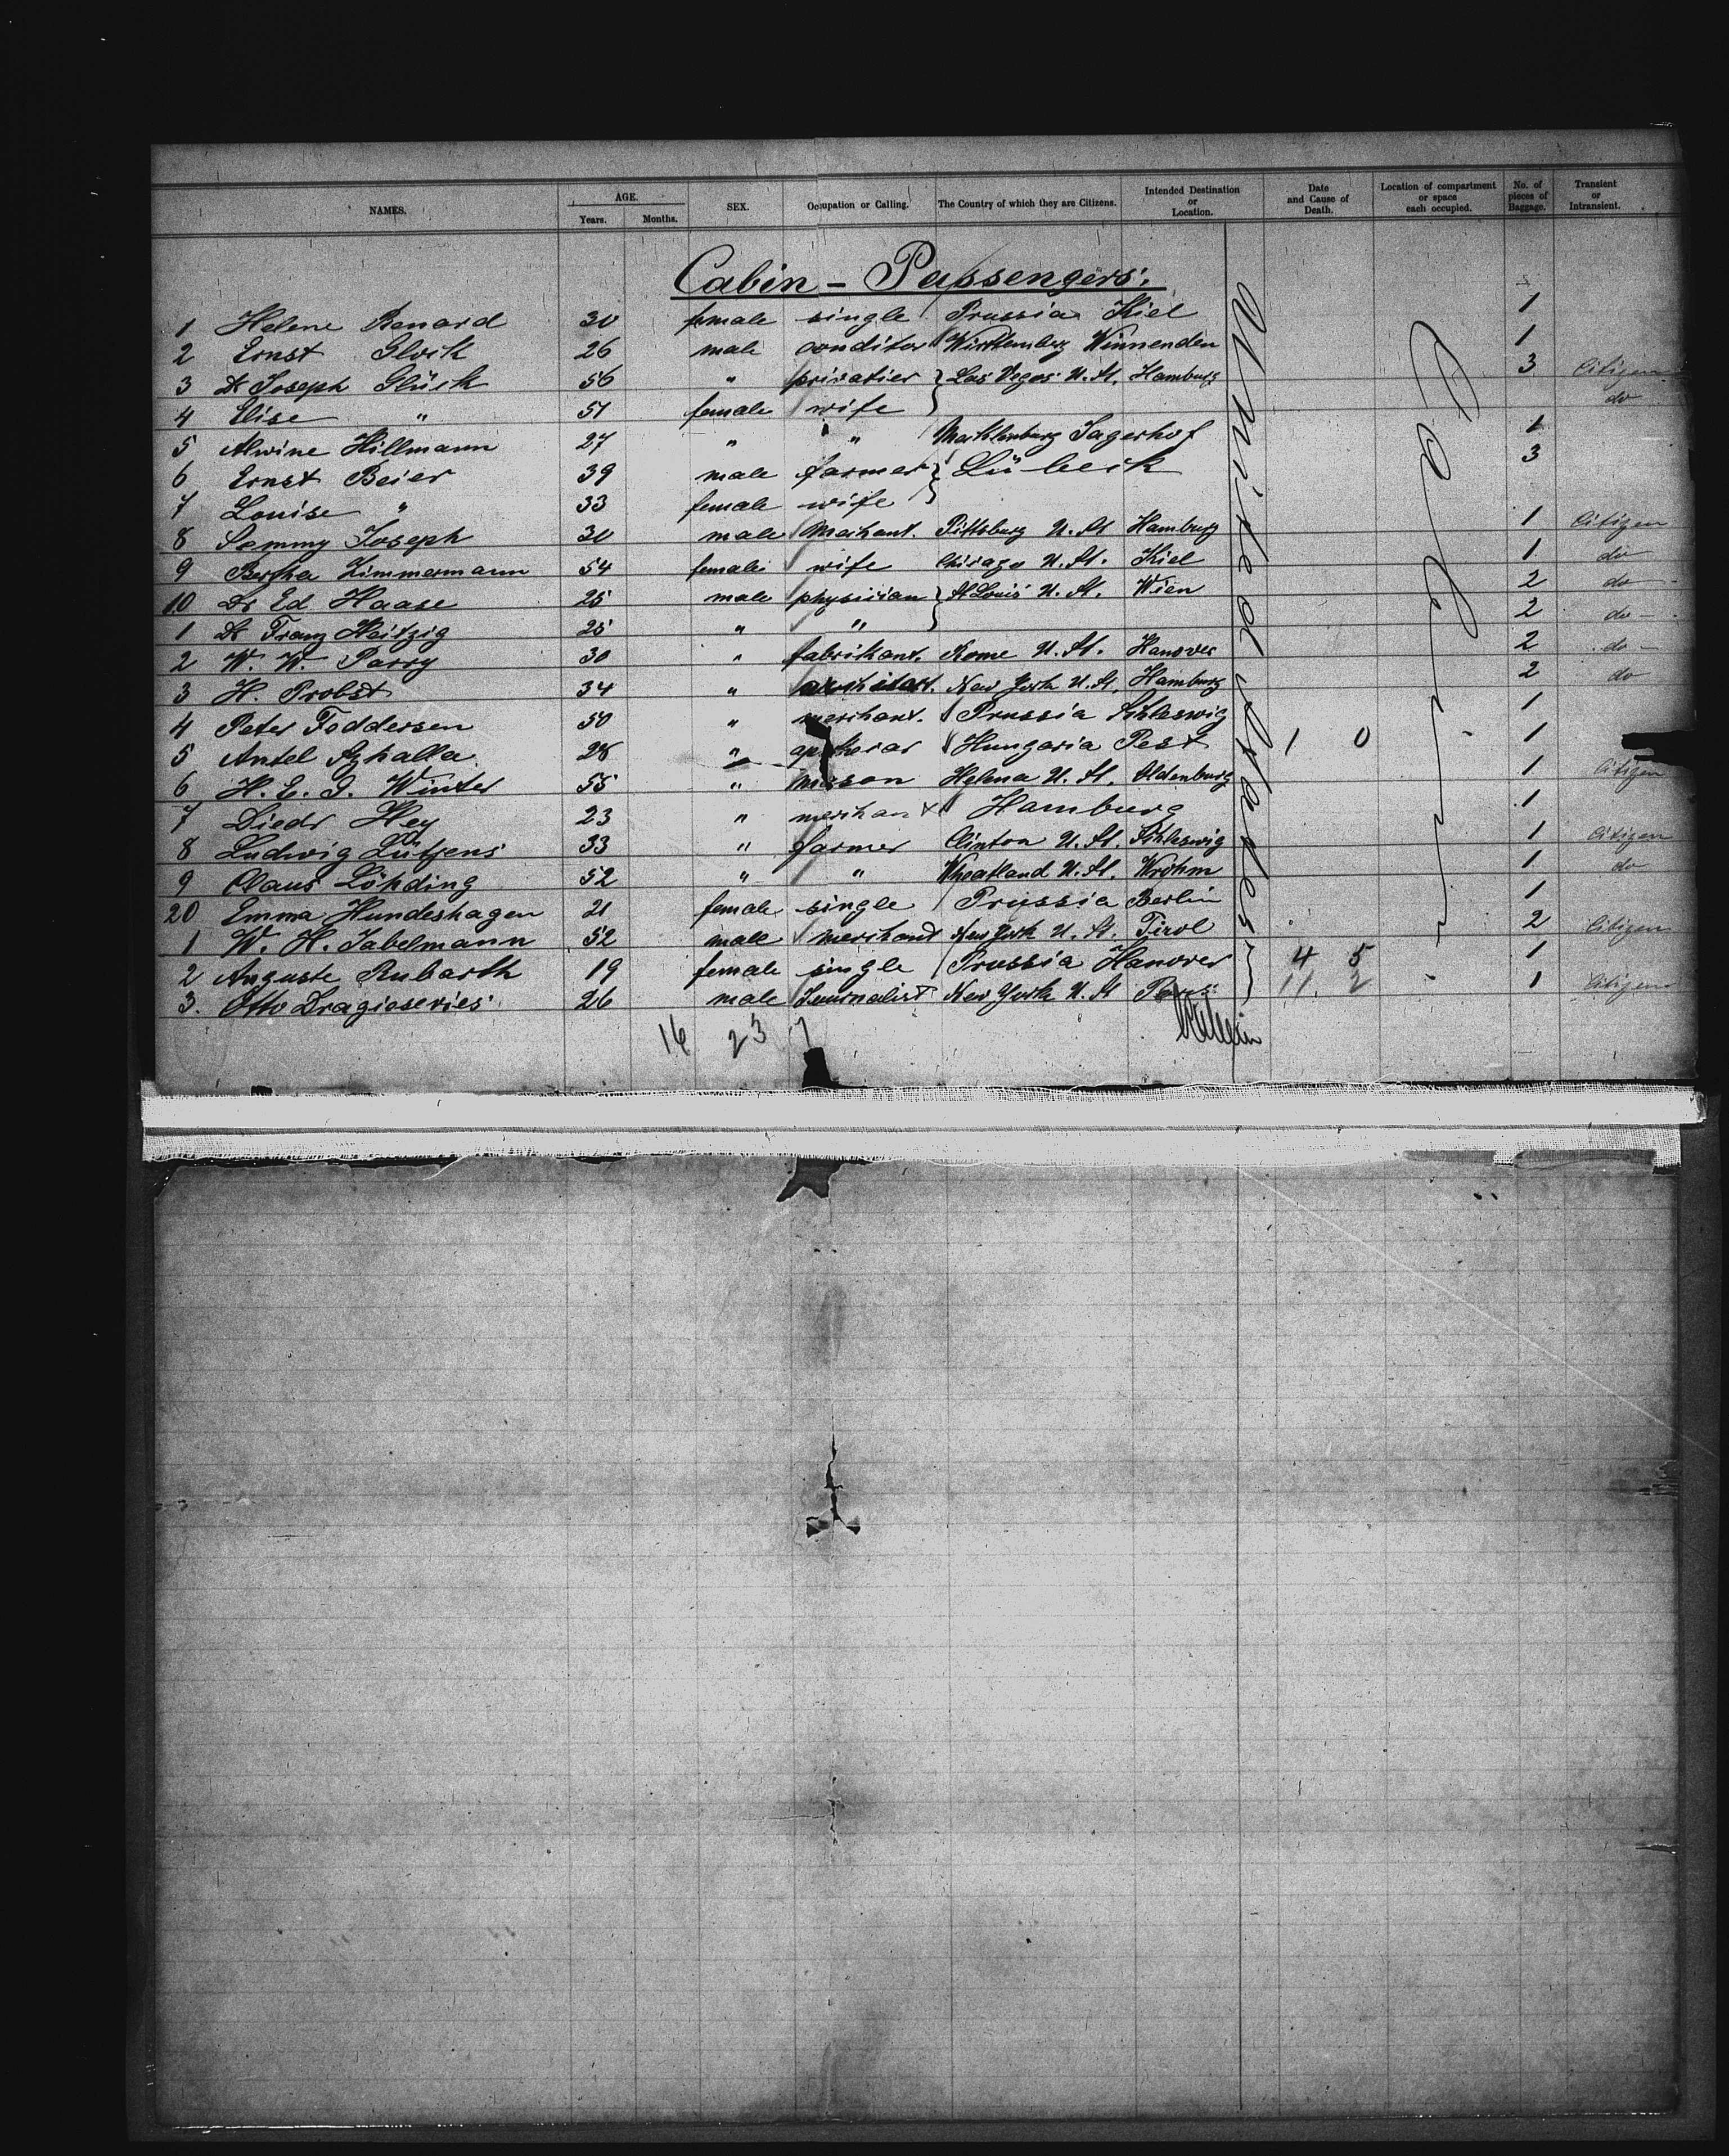 NAMES. AGE. Years. Months. SEX. Occupation or Calling. The Country of which they are Citizens. Intended Destination or Location. Date and Cause of Death. Location of compartment or space each occupied. No. of pieces of Baggage. Transient or Intransient.
Cabin - Passengers.
1 Helene Renard 30 female single Prussia Kiel 1
2 Ernst 26 male conditor Württemberg Winnenden 1
3 Dr Joseph Glück 56 " privatier Las Vegas U. St. Hamburg 3 Citizen
4 Elise " 51 female wife do
5 Alwine Hillmann 27 " " Mecklenburg Jagerhof 1
6 Ernst Beier 39 male farmer Lübeck 3
7 Louise " 33 female wife
8 Sammy Joseph 30 male Merchant. Pittsburg U. St Hamburg 1 Citizen
9 Bertha Zimmermann 54 female wife Chicago U. St. Kiel 1 do
10 Dr Ed Haase 25 male physician St Louis U. St. Wien 2 do
1 Dr Franz Heitzig 25 " " 2 do
2 W. W. Parry 30 " fabrikant. Rome U. St. Hanover 2 do
3 H. Probst 34 " New York U. St. Hamburg 2 do
4 Peter Foddersen 50 " merchant. Prussia Schleswig 1
5 28 " Hungaria Pest 1 0 1
6 H. E. G. Winter 55 " Helena U. St. Oldenburg 1 Citizen
7 Diedr Hey 23 " merchant Hamburg 1
8 Ludwig Lütjens 33 " farmer Clinton U. St. Schleswig 1 Citizen
9 Claus Löhding 52 " " Wheatland U. St. Wrohm 1 do
20 Emma Hundeshagen 21 female single Prussia Berlin 1
1 W. H. Tabelmann 52 male merchant New York U. St. Tirol 2 Citizen
2 Auguste Rubarth 19 female single Prussia Hanover 4 5 1
3. Otto 26 male Journalist New York U. St 11. 2 1 Citizen
16 23 7
United States